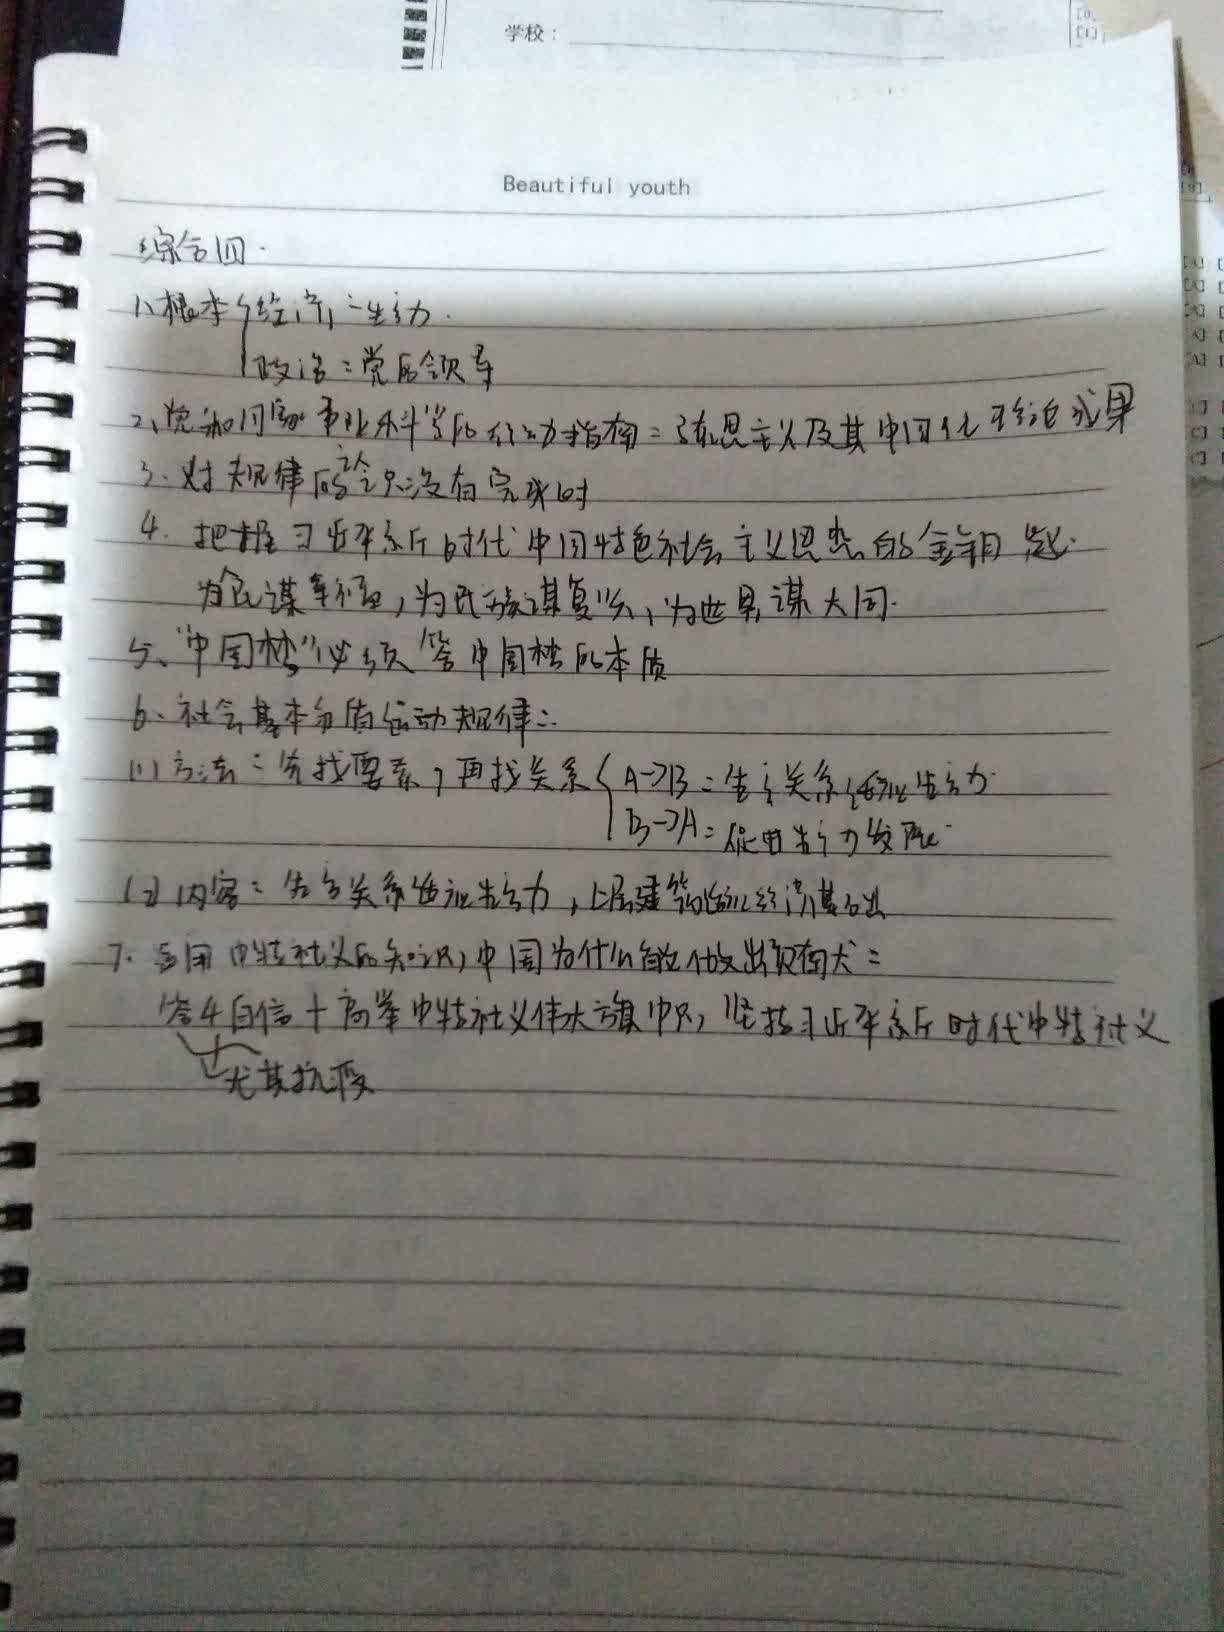 学校：
Beautiful youth
综合四.
1、根本{经济：生产力.
政治：党的领导
2、党和国家事业科学的行动指南：马思主义及其中国化理论成果
3.对规律的认识没有完成时
4.把握习近平新时代中国特色社会主义思想的金钥匙.
为人民谋幸福，为民族谋复兴，为世界谋大同.
5、"中国梦"必须答中国梦的本质
6.社会基本矛盾运动规律：
(1)方法：先找要素，再找关系{A→B：生产关系适应生产力
B→A：促进生产力发展
(2)内容：生产关系适应生产力，上层建筑适应经济基础
7.运用中特社义的知识，中国为什么能做出贡献：
答4自信+高举中特社义伟大旗帜，坚持习近平新时代中特社义
尤其抗疫